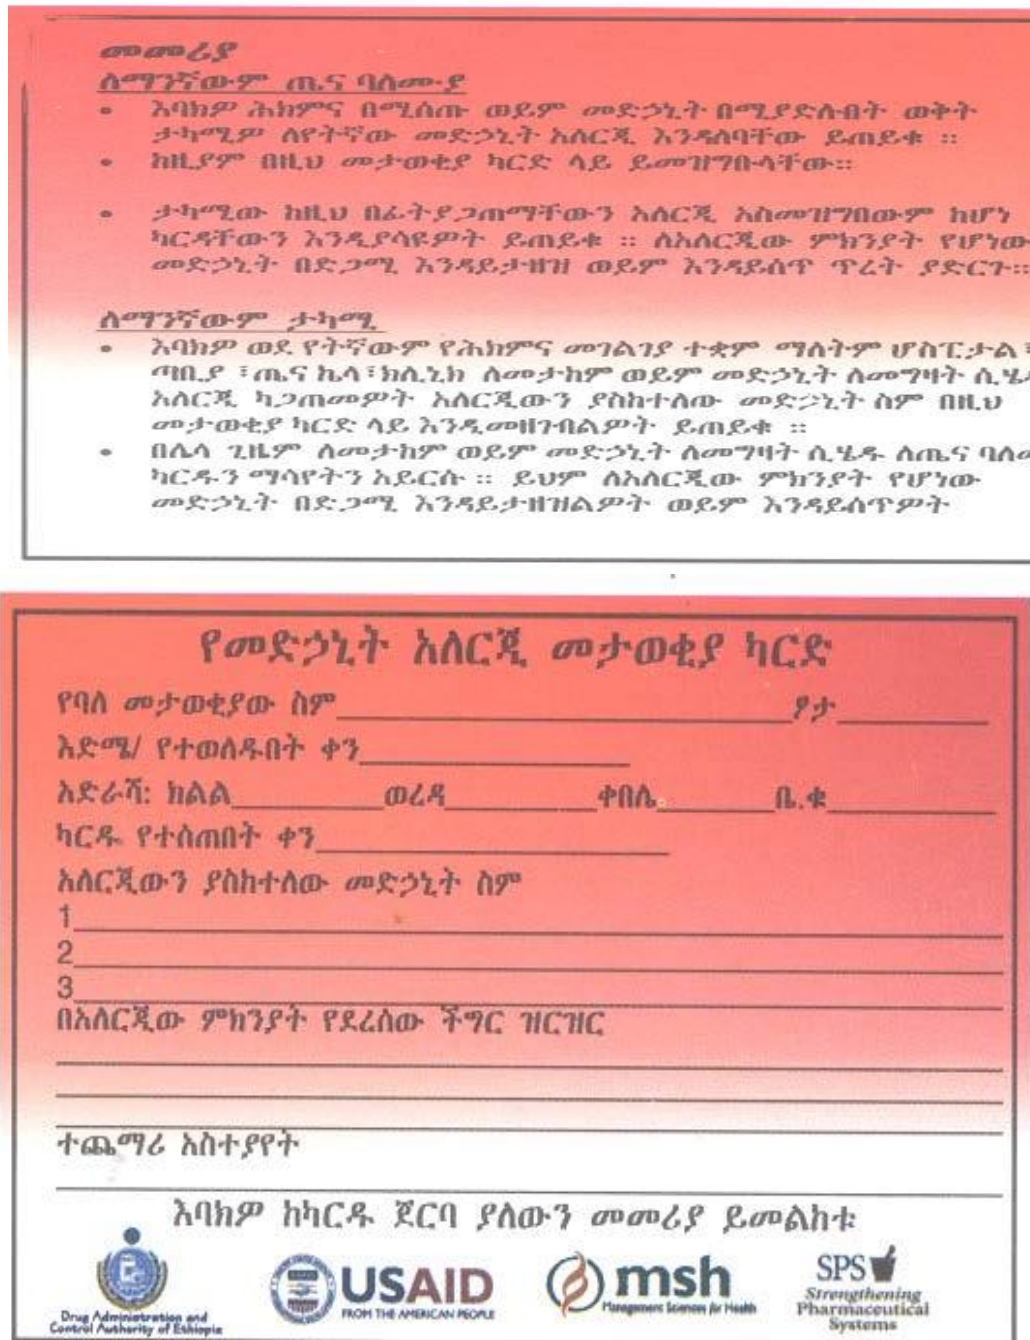 መመሪያ
ለማንኛውም ጤና ባለሙያ
• እባክዎ ሕክምና በሚሰጡ ወይም መድኃኒት በሚያድሉበት ወቅት
ታካሚዎ ለየትኛው መድኃኒት አለርጂ እንዳለባቸው ይጠይቁ ።
• ከዚያም በዚህ መታወቂያ ካርድ ላይ ይመዝግቡላቸው።
• ታካሚው ከዚህ በፊትያጋጠማቸውን አለርጂ አስመዝግበውም ከሆነ
ካርዳቸውን እንዲያሳዩዎት ይጠይቁ ። ለአለርጂው ምክንያት የሆነው
መድኃኒት በድጋሚ እንዳይታዘዝ ወይም እንዳይሰጥ ጥረት ያድርጉ።
ለማንኛውም ታካሚ
• እባክዎ ወደ የትኛውም የሕክምና መገልገያ ተቋም ማለትም ሆስፒታል፣
ጣቢያ ፣ጤና ኬላ፣ክሊኒክ ለመታከም ወይም መድኃኒት ለመግዛት ሲሄዱ
አለርጂ ካጋጠመዎት አለርጂውን ያስከተለው መድኃኒት ስም በዚህ
መታወቂያ ካርድ ላይ እንዲመዘገብልዎት ይጠይቁ ።
• በሌላ ጊዜም ለመታከም ወይም መድኃኒት ለመግዛት ሲሄዱ ለጤና
ካርዱን ማሳየትን አይርሱ ። ይህም ለአለርጂው ምክንያት የሆነው
መድኃኒት በድጋሚ እንዳይታዘዝልዎት ወይም እንዳይሰጥዎት
የመድኃኒት አለርጂ መታወቂያ ካርድ
የባለ መታወቂያው ስም ፆታ
እድሜ/ የተወለዱበት ቀን
አድራሻ: ክልል ወረዳ ቀበሌ ቤ.ቁ
ካርዱ የተሰጠበት ቀን
አለርጂውን ያስከተለው መድኃኒት ስም
1
2
3
በአለርጂው ምክንያት የደረሰው ችግር ዝርዝር
ተጨማሪ አስተያየት
እባክዎ ከካርዱ ጀርባ ያለውን መመሪያ ይመልከቱ
Drug Administration and
Control Authority of Ethiopia
USAID
FROM THE AMERICAN PEOPLE
msh
Management Sciences for Health
SPS
Strengthening
Pharmaceutical
Systems